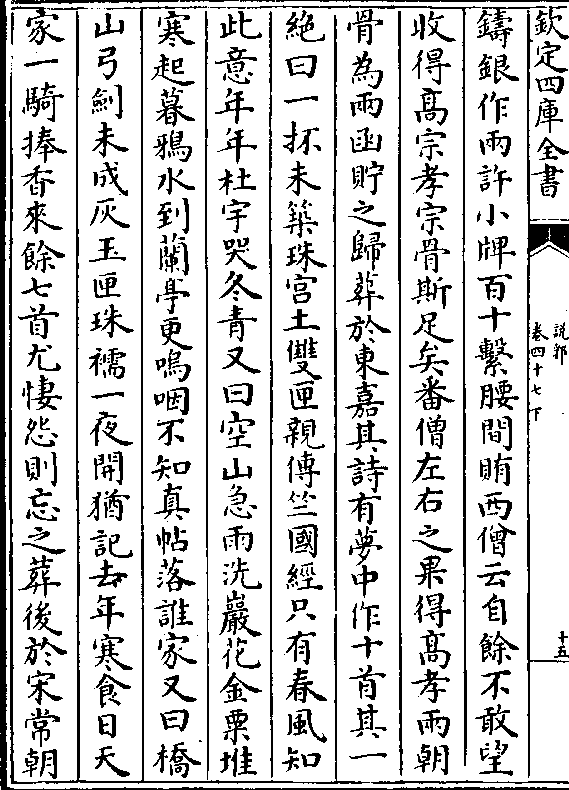 欽定四庫全書
說郛
卷四十七下
十五
鑄銀作兩許小牌百十繫腰間賄西僧云自餘不敢望
收得高宗孝宗骨斯足矣番僧左右之果得高孝兩朝
骨為兩函貯之歸葬於東嘉其詩有夢中作十首其一
絶曰一抔未築珠宫土雙匣親傳竺國經只有春風知
此意年年杜宇哭冬青又曰空山急雨洗巖花金粟堆
寒起暮鴉水到蘭亭更嗚咽不知真帖落誰家又曰橋
山弓劍未成灰玉匣珠襦一夜開猶記去年寒食日天
家一騎捧香來餘七首尤悽怨則忘之葬後於宋常朝